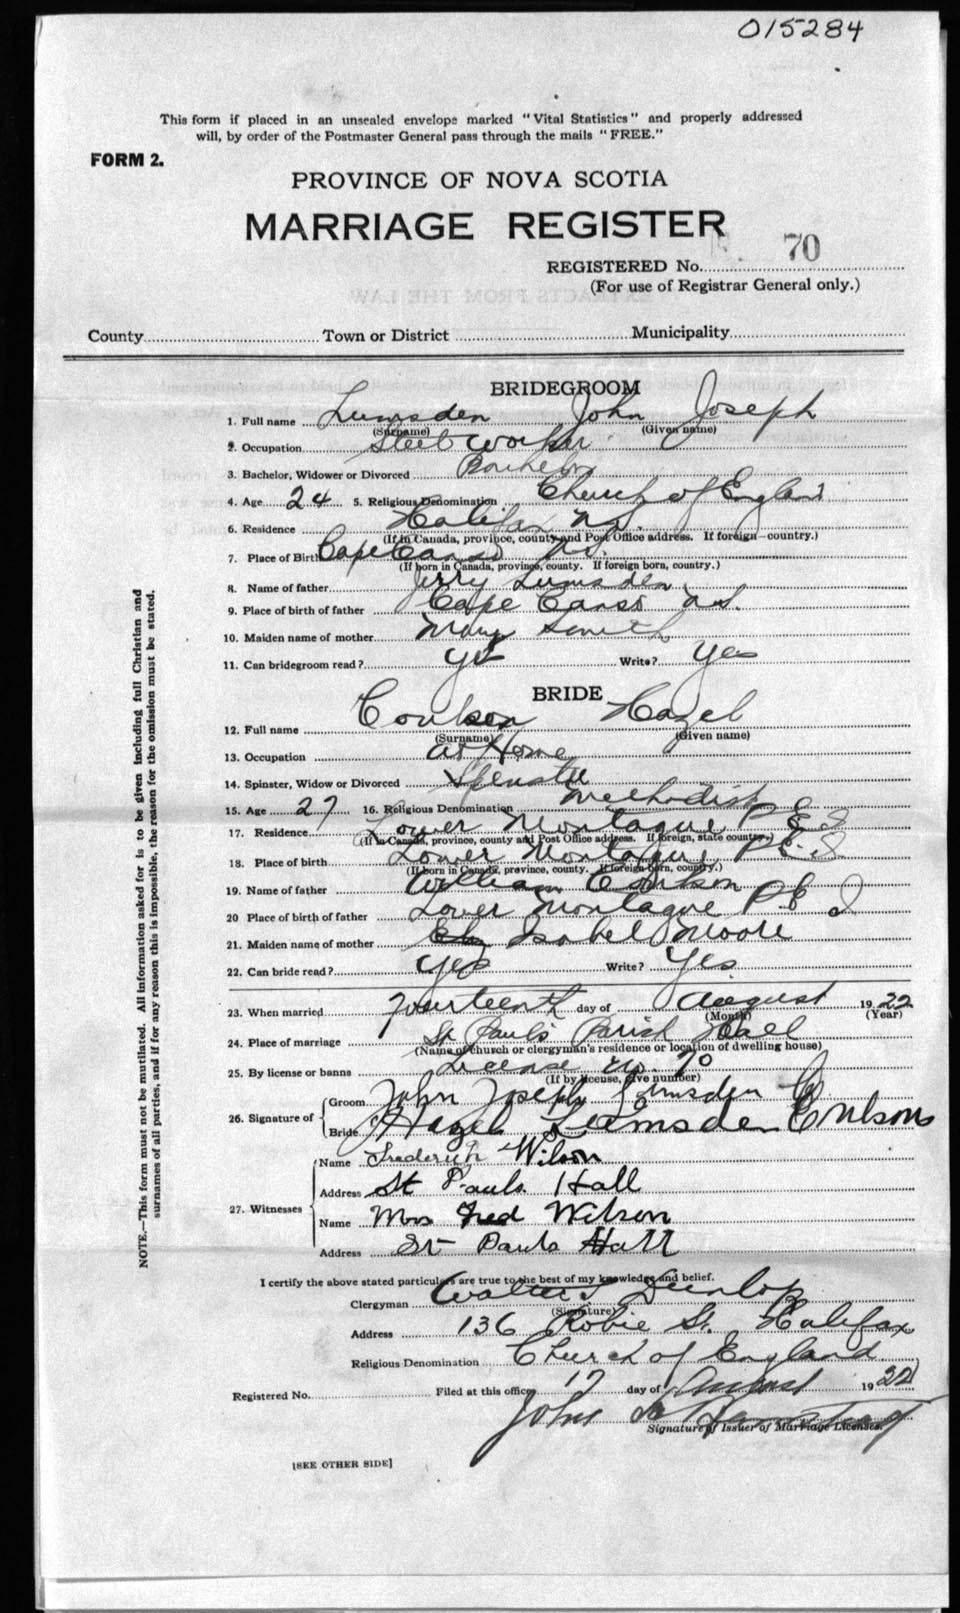 015284
This form if placed in an unsealed envelope marked "Vital Statistics" and properly addressed
will, by order of the Postmaster General pass through the mails "FREE."
FORM 2.
PROVINCE OF NOVA SCOTIA
MARRIAGE REGISTER
REGISTERED No. 70
(For use of Registrar General only.)
County Town or District Municipality
BRIDEGROOM
1. Full name Lumsden John Joseph
(Surname) (Given name)
2. Occupation Steel worker
3. Bachelor, Widower or Divorced Bachelor
4. Age 24 5. Religious Denomination Church of England
6. Residence Halifax N.S.
(If in Canada, province, county and Post Office address. If foreign—country.)
7. Place of Birth Cape Canso N.S.
(If born in Canada, province, county. If foreign born, country.)
8. Name of father Jerry Lumsden
9. Place of birth of father Cape Canso N.S.
10. Maiden name of mother Mary Smith
11. Can bridegroom read? yes Write? yes
BRIDE
12. Full name Coulson Hazel
(Surname) (Given name)
13. Occupation at Home
14. Spinster, Widow or Divorced Spinster
15. Age 27 16. Religious Denomination Methodist
17. Residence Lower Montague P E I
(If in Canada, province, county and Post Office address. If foreign, state country.)
18. Place of birth Lower Montague P E I
(If born in Canada, province, county. If foreign born, country.)
19. Name of father William Coulson
20 Place of birth of father Lower Montague P E I
21. Maiden name of mother Isobel Moore
22. Can bride read? Yes Write? Yes.
23. When married Fourteenth day of August 1922
(Month) (Year)
24. Place of marriage St Paul's Parish Hall
(Name of church or clergyman's residence or location of dwelling house)
25. By license or banns License no. 70
(If by license, give number)
26. Signature of Groom John Joseph Lumsden
Bride Hazel Lumsden Coulson
27. Witnesses Name Frederick Wilson
Address St Pauls Hall
Name Mrs Fred Wilson
Address St Pauls Hall
I certify the above stated particulars are true to the best of my knowledge and belief.
Clergyman Dunlop
(Signature)
Address 136 Robie St. Halifax
Religious Denomination Church of England
Registered No. Filed at this office 17 day of August 1922
John
Signature of Issuer of Marriage Licenses.
[SEE OTHER SIDE]
NOTE.—This form must not be mutilated. All information asked for is to be given including full Christian and
surnames of all parties, and if for any reason this is impossible, the reason for the omission must be stated.